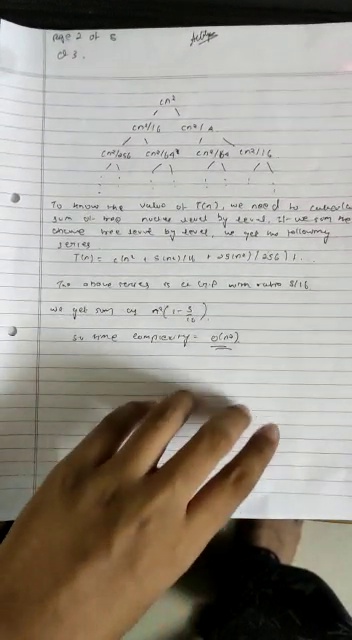 Page 2 of 5
Q 3.
cn²
cn²/16 cn²/4
cn²/256 cn²/64 cn²/64 cn²/16
To know the value of T(n), we need to calculate
sum of tree nodes level by level. If we sum the
above tree level by level, we get the following
series
T(n) = c(n² + 5(n²)/16 + 25(n²)/256)+...
The above series is a G.P with ratio 5/16
we get sum as n²(1 - 5/16).
so time complexity = O(n²)